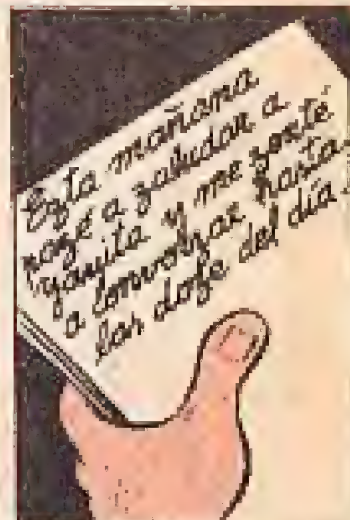 Ezta mañana
pazé a zaludar a
Yayita y me zenté
a converzar hasta
las doze del día.